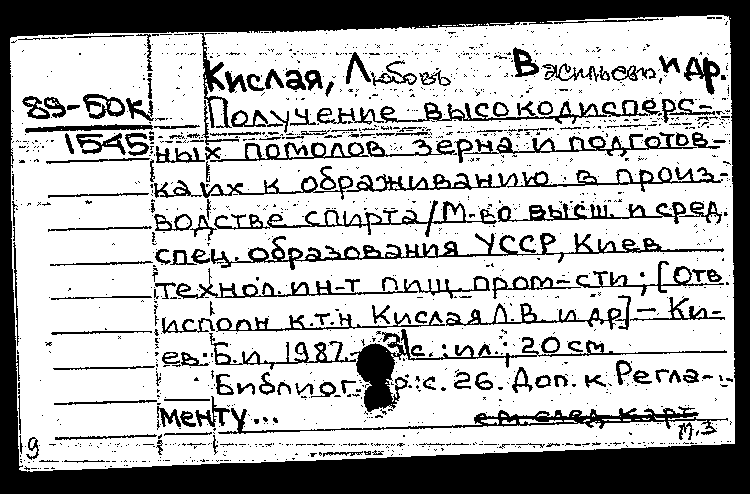 Кислая, Любовь Васильевн. и др.
89-50К
1545
Получение высокодисперс-
ных помолов зерна и подготов-
ка их к сбраживанию в произ-
водстве спирта / М-во высш. и сред.
спец. образования УССР, Киев
технол. ин-т пищ. пром-сти ; [Отв.
исполн к.т.н. Кислая Л.В. и др] - Ки-
ев: Б.и., 1987. - 31 с. : ил.; 20 см.
Библиог р.: с. 26. Доп. к Регла-
менту...
см. след. карт
м.з
9